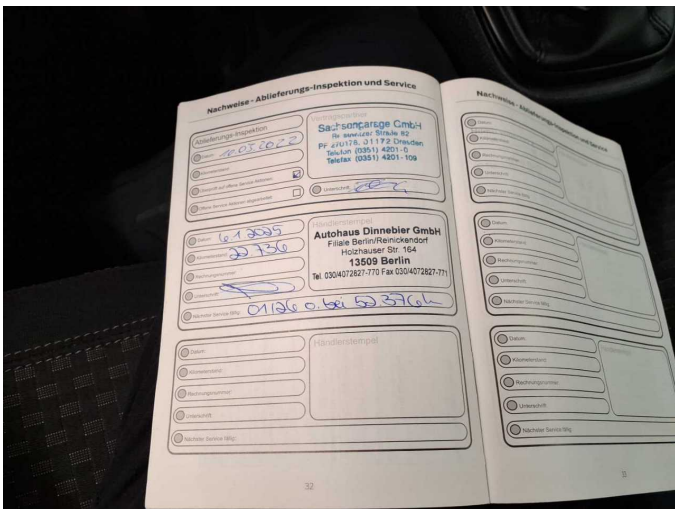 Nachweise - Ablieferungs-Inspektion und Service
Ablieferungs-Inspektion
Datum 10.03.2022
Vertragspartner
Sachsengarage GmbH
Straße 82
PF 270178, 01172 Dresden
Telefon (0351) 4201-0
Telefax (0351) 4201-109
Unterschrift
Datum 6.1.2025
Kilometerstand 22 736
Rechnungsnummer
Unterschrift
Nächster Service fällig: 01/26 o. bei 52 376
Händlerstempel
Autohaus Dinnebier GmbH
Filiale Berlin/Reinickendorf
Holzhauser Str. 164
13509 Berlin
Tel. 030/4072827-770 Fax 030/4072827-771
Datum
Kilometerstand
Rechnungsnummer
Unterschrift
Nächster Service fällig:
Händlerstempel
32
Nachweise - Ablieferungs-Inspektion und Service
Datum
Kilometerstand
Rechnungsnummer
Unterschrift
Nächster Service fällig
Datum
Kilometerstand
Rechnungsnummer
Unterschrift
Nächster Service fällig
Datum
Kilometerstand
Rechnungsnummer
Unterschrift
Nächster Service fällig